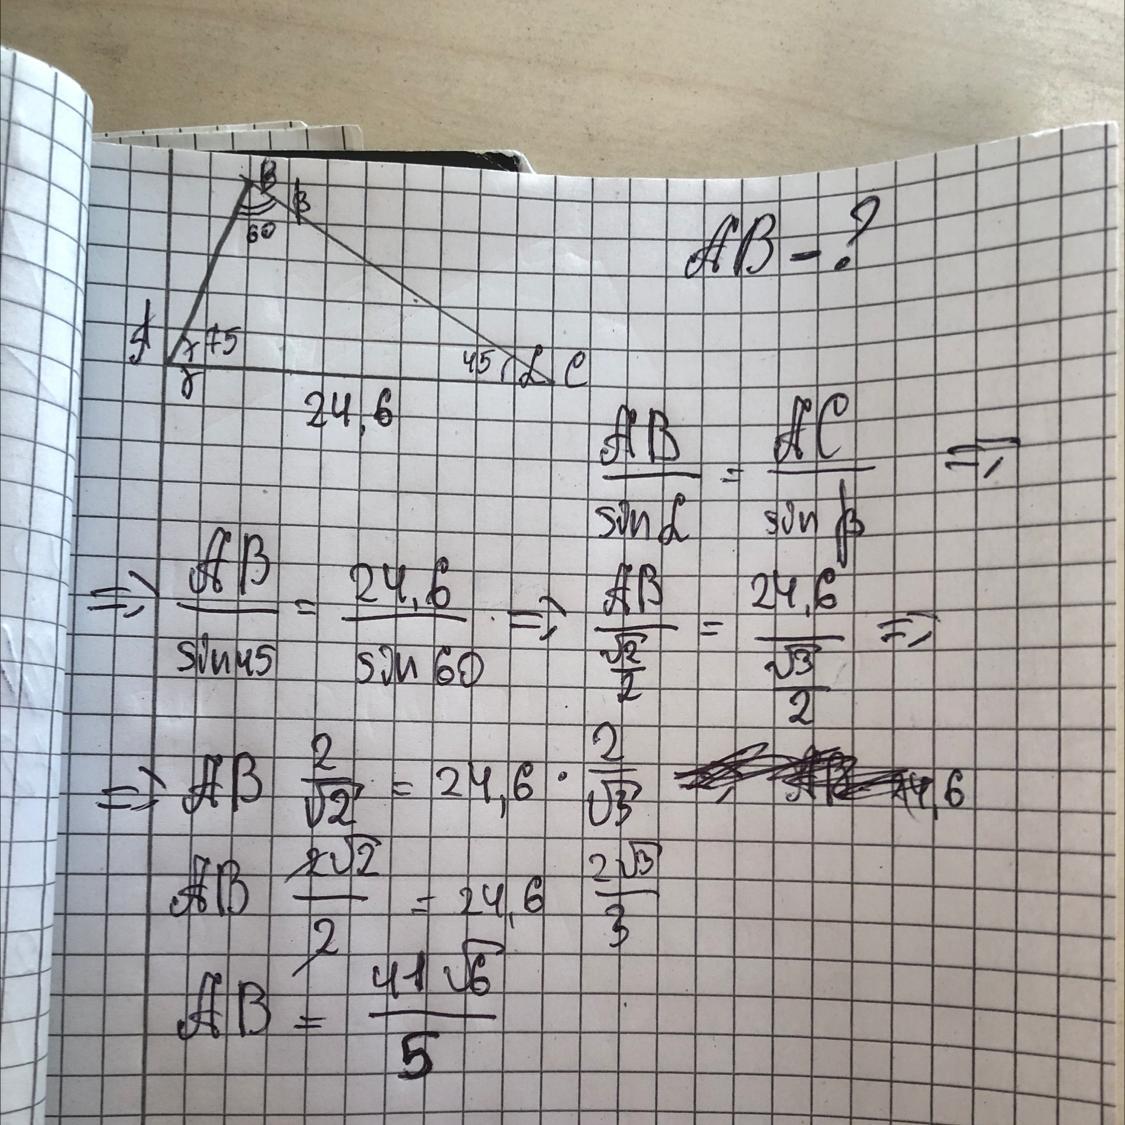 B β
60
AB - ?
A γ 75 45 α C
γ
24,6
AB/sin α = AC/sin β =>
=> AB/sin 45 = 24,6/sin 60 => AB/(√2/2) = 24,6/(√3/2) =>
=> AB 2/√2 = 24,6 · 2/√3
AB 2√2/2 = 24,6 2√3/3
AB = 41√6/5